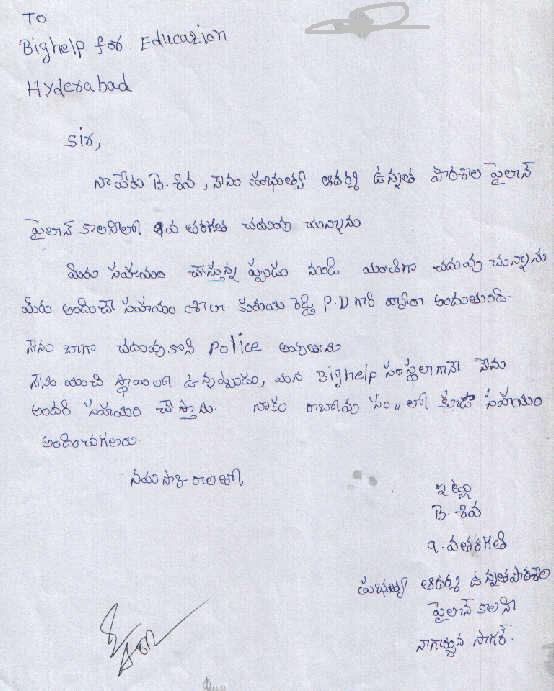 To
Bighelp for Educazion
Hyderabad
Sir,
నా పేరు B. శివ, నేను ఆదర్శ ఉన్నత పాఠశాల పైలాన్
పైలాన్ కాలనీలో. తరగతి చదువు చున్నాను
మీరు సహాయం చేస్తున్న నుండి బాగా చదువు చున్నాను
మీరు అందించే సహాయం రెడ్డి P.D గారి ద్వారా అందుతుంది.
నేను బాగా చదువుకొని Police అవుతాను
నేను మంచి స్థాయిలో ఉన్నప్పుడు, మన Bighelp సంస్థలాగానే నేను
అందరికి సహాయం చేస్తాను. నాకు రాబోవు సం,, లో కూడా సహాయం
అందించగలరు.
ఇట్లు
B. శివ
తరగతి
ఆదర్శ ఉన్నతపాఠశాల
పైలాన్ కాలనీ
నాగార్జున సాగర్.